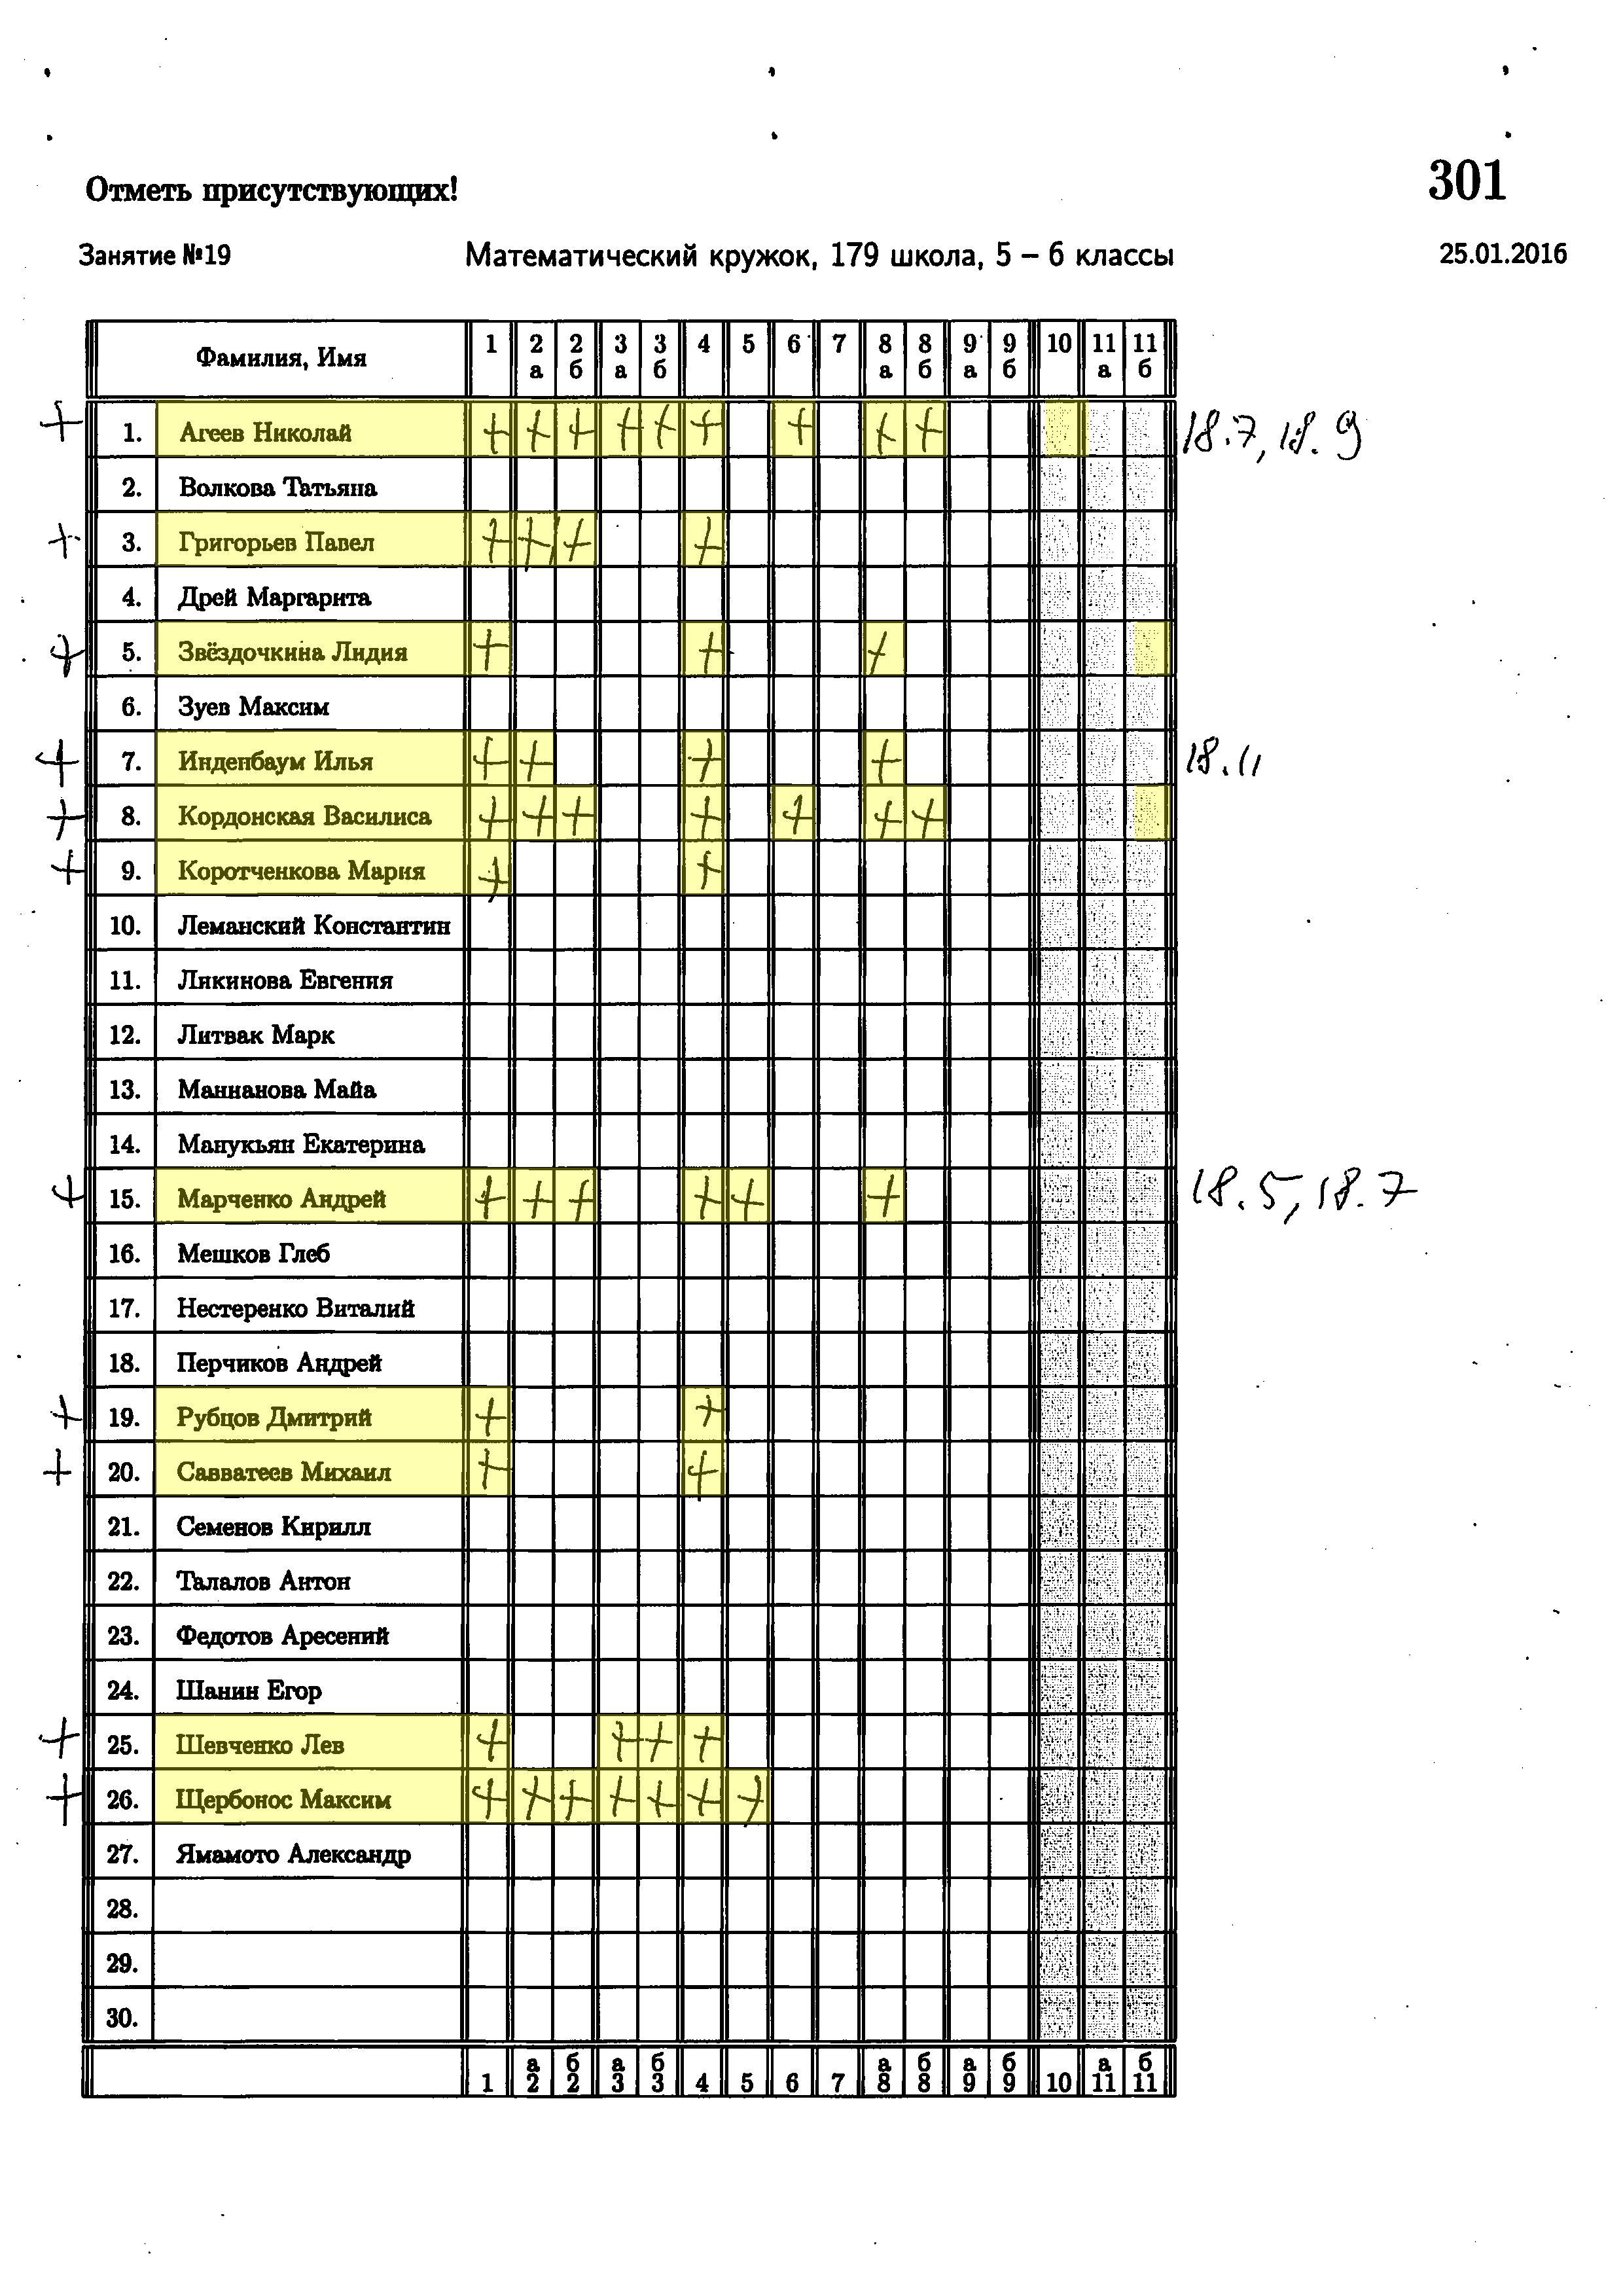 Отметь присутствующих!
301
Занятие №19 Математический кружок, 179 школа, 5 – 6 классы 25.01.2016
Фамилия, Имя 1 2а 2б 3а 3б 4 5 6 7 8а 8б 9а 9б 10 11а 11б
+ 1. Агеев Николай + + + + + + + + + 18.7, 18.9
2. Волкова Татьяна
+ 3. Григорьев Павел + + + +
4. Дрей Маргарита
+ 5. Звёздочкина Лидия + + +
6. Зуев Максим
+ 7. Инденбаум Илья + + + + 18.11
+ 8. Кордонская Василиса + + + + + + +
+ 9. Коротченкова Мария + +
10. Леманский Константин
11.Ликинова Евгения
12. Литвак Марк
13. Маннанова Майа
14. Манукьян Екатерина
+ 15. Марченко Андрей + + + + + + 18.5, 18.7
16. Мешков Глеб
17. Нестеренко Виталий
18. Перчиков Андрей
+ 19. Рубцов Дмитрий + +
+ 20. Савватеев Михаил + +
21. Семенов Кирилл
22. Талалов Антон
23. Федотов Аресений
24. Шанин Егор
+ 25. Шевченко Лев + + + +
+ 26. Щербонос Максим + + + + + + +
27. Ямамото Александр
28.
29.
30.
1 а2 б2 а3 б3 4 5 6 7 а8 б8 а9 б9 10 а11 б11